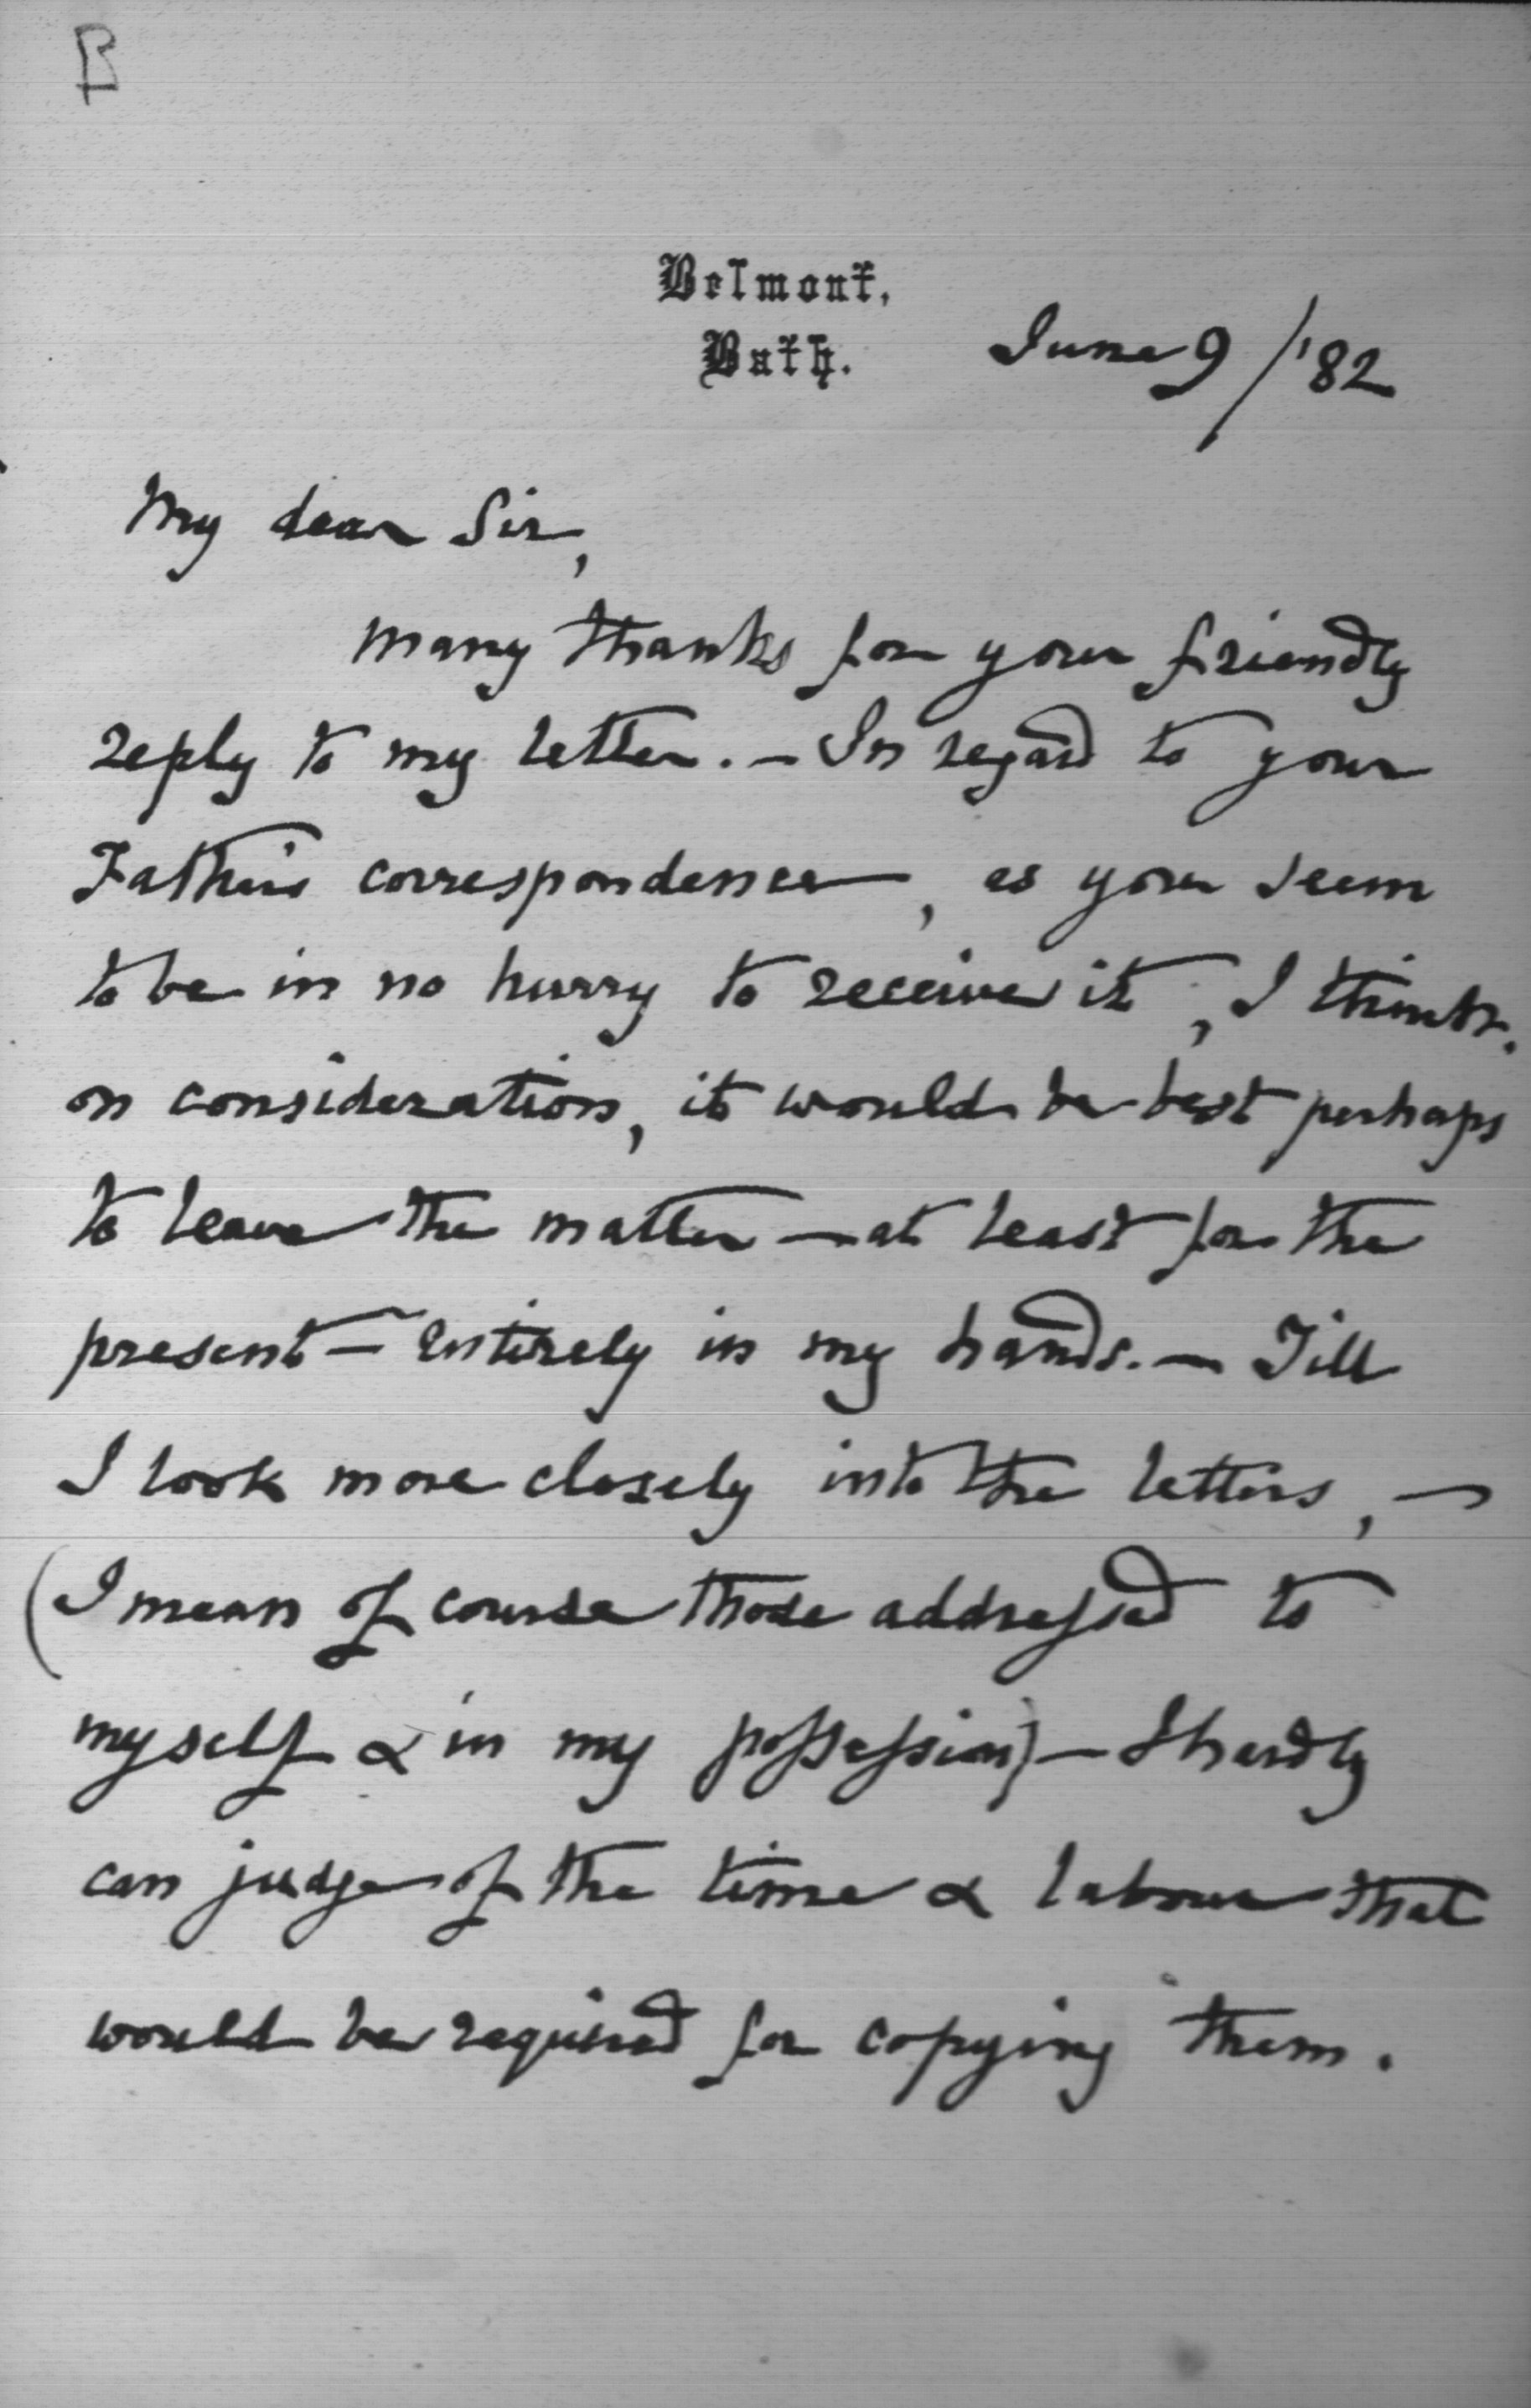 B
Belmont,
Bath.
June 9 / '82
My dear Sir,
Many thanks for your friendly
reply to my letter. – In regard to your
Father's correspondence, as you seem
to be in no hurry to receive it, I think.
on consideration, it would be best perhaps
to leave the matter – at least for the
present – entirely in my hands. – Till
I look more closely into the letters, –
(I mean of course those addressed to
myself & in my possession) – I hardly
can judge of the time & labour that
would be required for copying them.